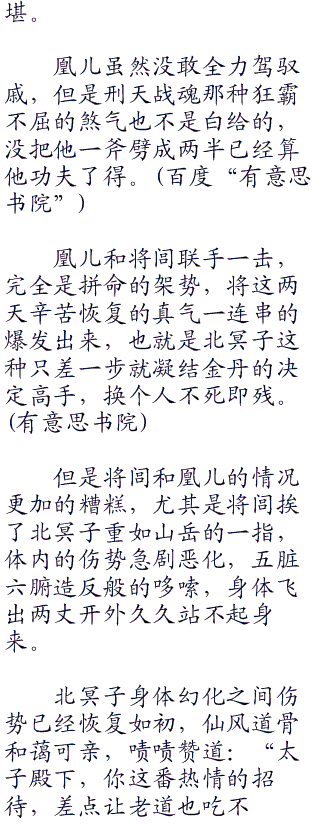 堪。
凰儿虽然没敢全力驾驭
戚，但是刑天战魂那种狂霸
不屈的煞气也不是白给的，
没把他一斧劈成两半已经算
他功夫了得。(百度“有意思
书院”)
凰儿和将闾联手一击，
完全是拼命的架势，将这两
天辛苦恢复的真气一连串的
爆发出来，也就是北冥子这
种只差一步就凝结金丹的决
定高手，换个人不死即残。
(有意思书院)
但是将闾和凰儿的情况
更加的糟糕，尤其是将闾挨
了北冥子重如山岳的一指，
体内的伤势急剧恶化，五脏
六腑造反般的哆嗦，身体飞
出两丈开外久久站不起身
来。
北冥子身体幻化之间伤
势已经恢复如初，仙风道骨
和蔼可亲，啧啧赞道：“太
子殿下，你这番热情的招
待，差点让老道也吃不